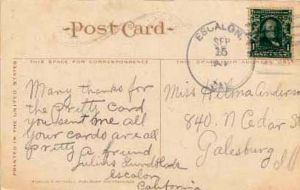 Post Card
THIS SPACE FOR CORRESPONDENCE
ESCALON,
SEP
15
CAL.
PRINTED IN THE UNITED STATES
Many thanks for
the Pretty Card
you sent me all
your Cards are all
Pretty a friend
Julius
Escalon
California
Miss Helma Anderson
840. N Cedar St
Galesburg
Ill